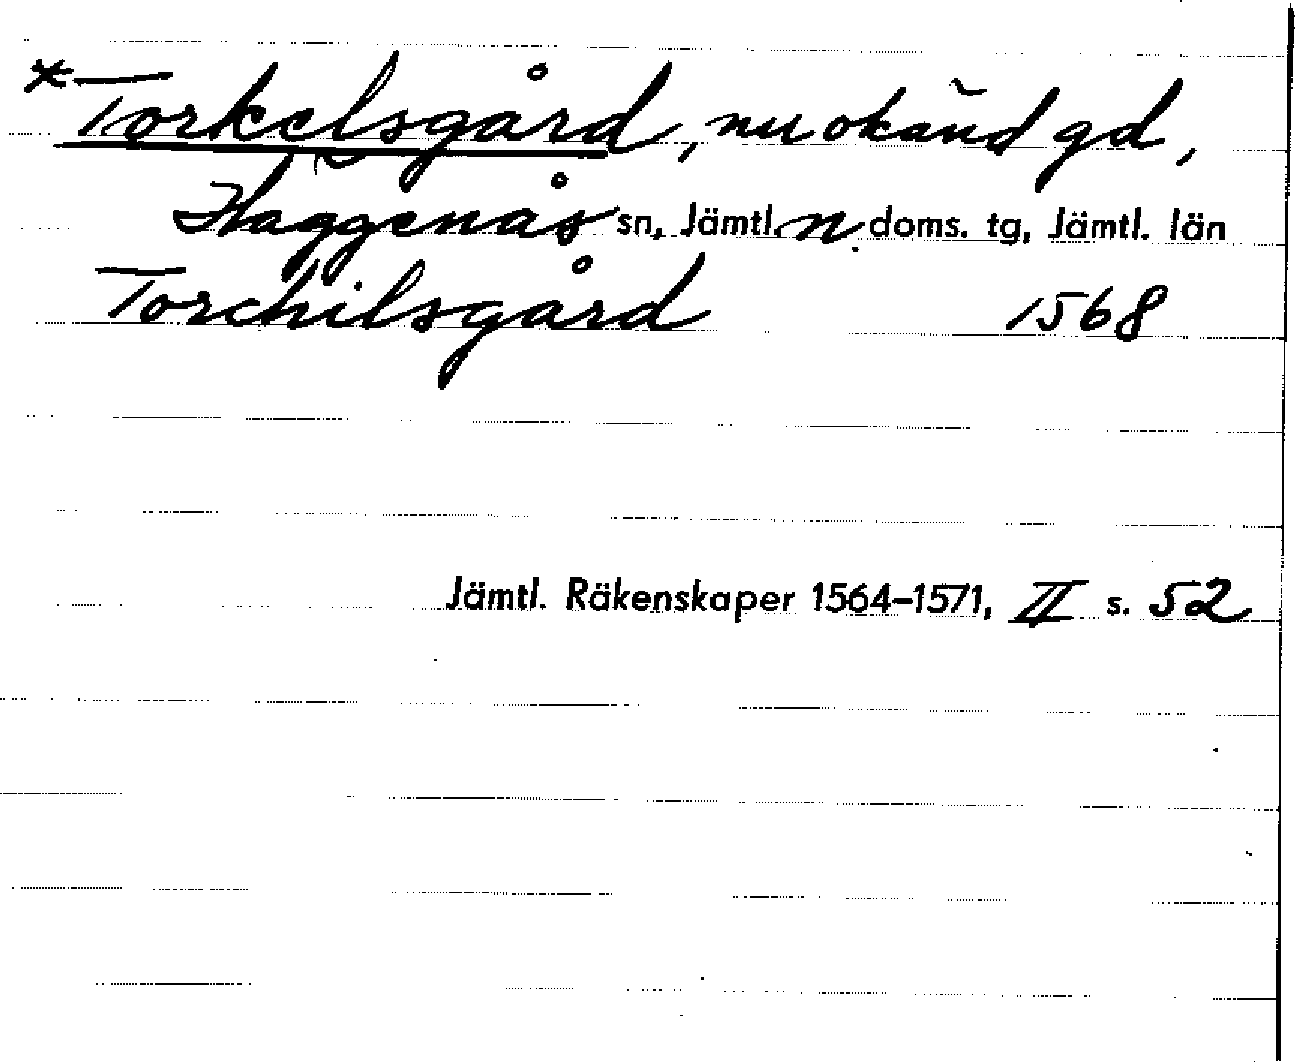 *Torkelsgård, nu okänd gd,
Häggenås sn, Jämtl. n. doms. tg, Jämtl. län
Torchilsgård 1568
Jämtl. Räkenskaper 1564–1571, II s. 52